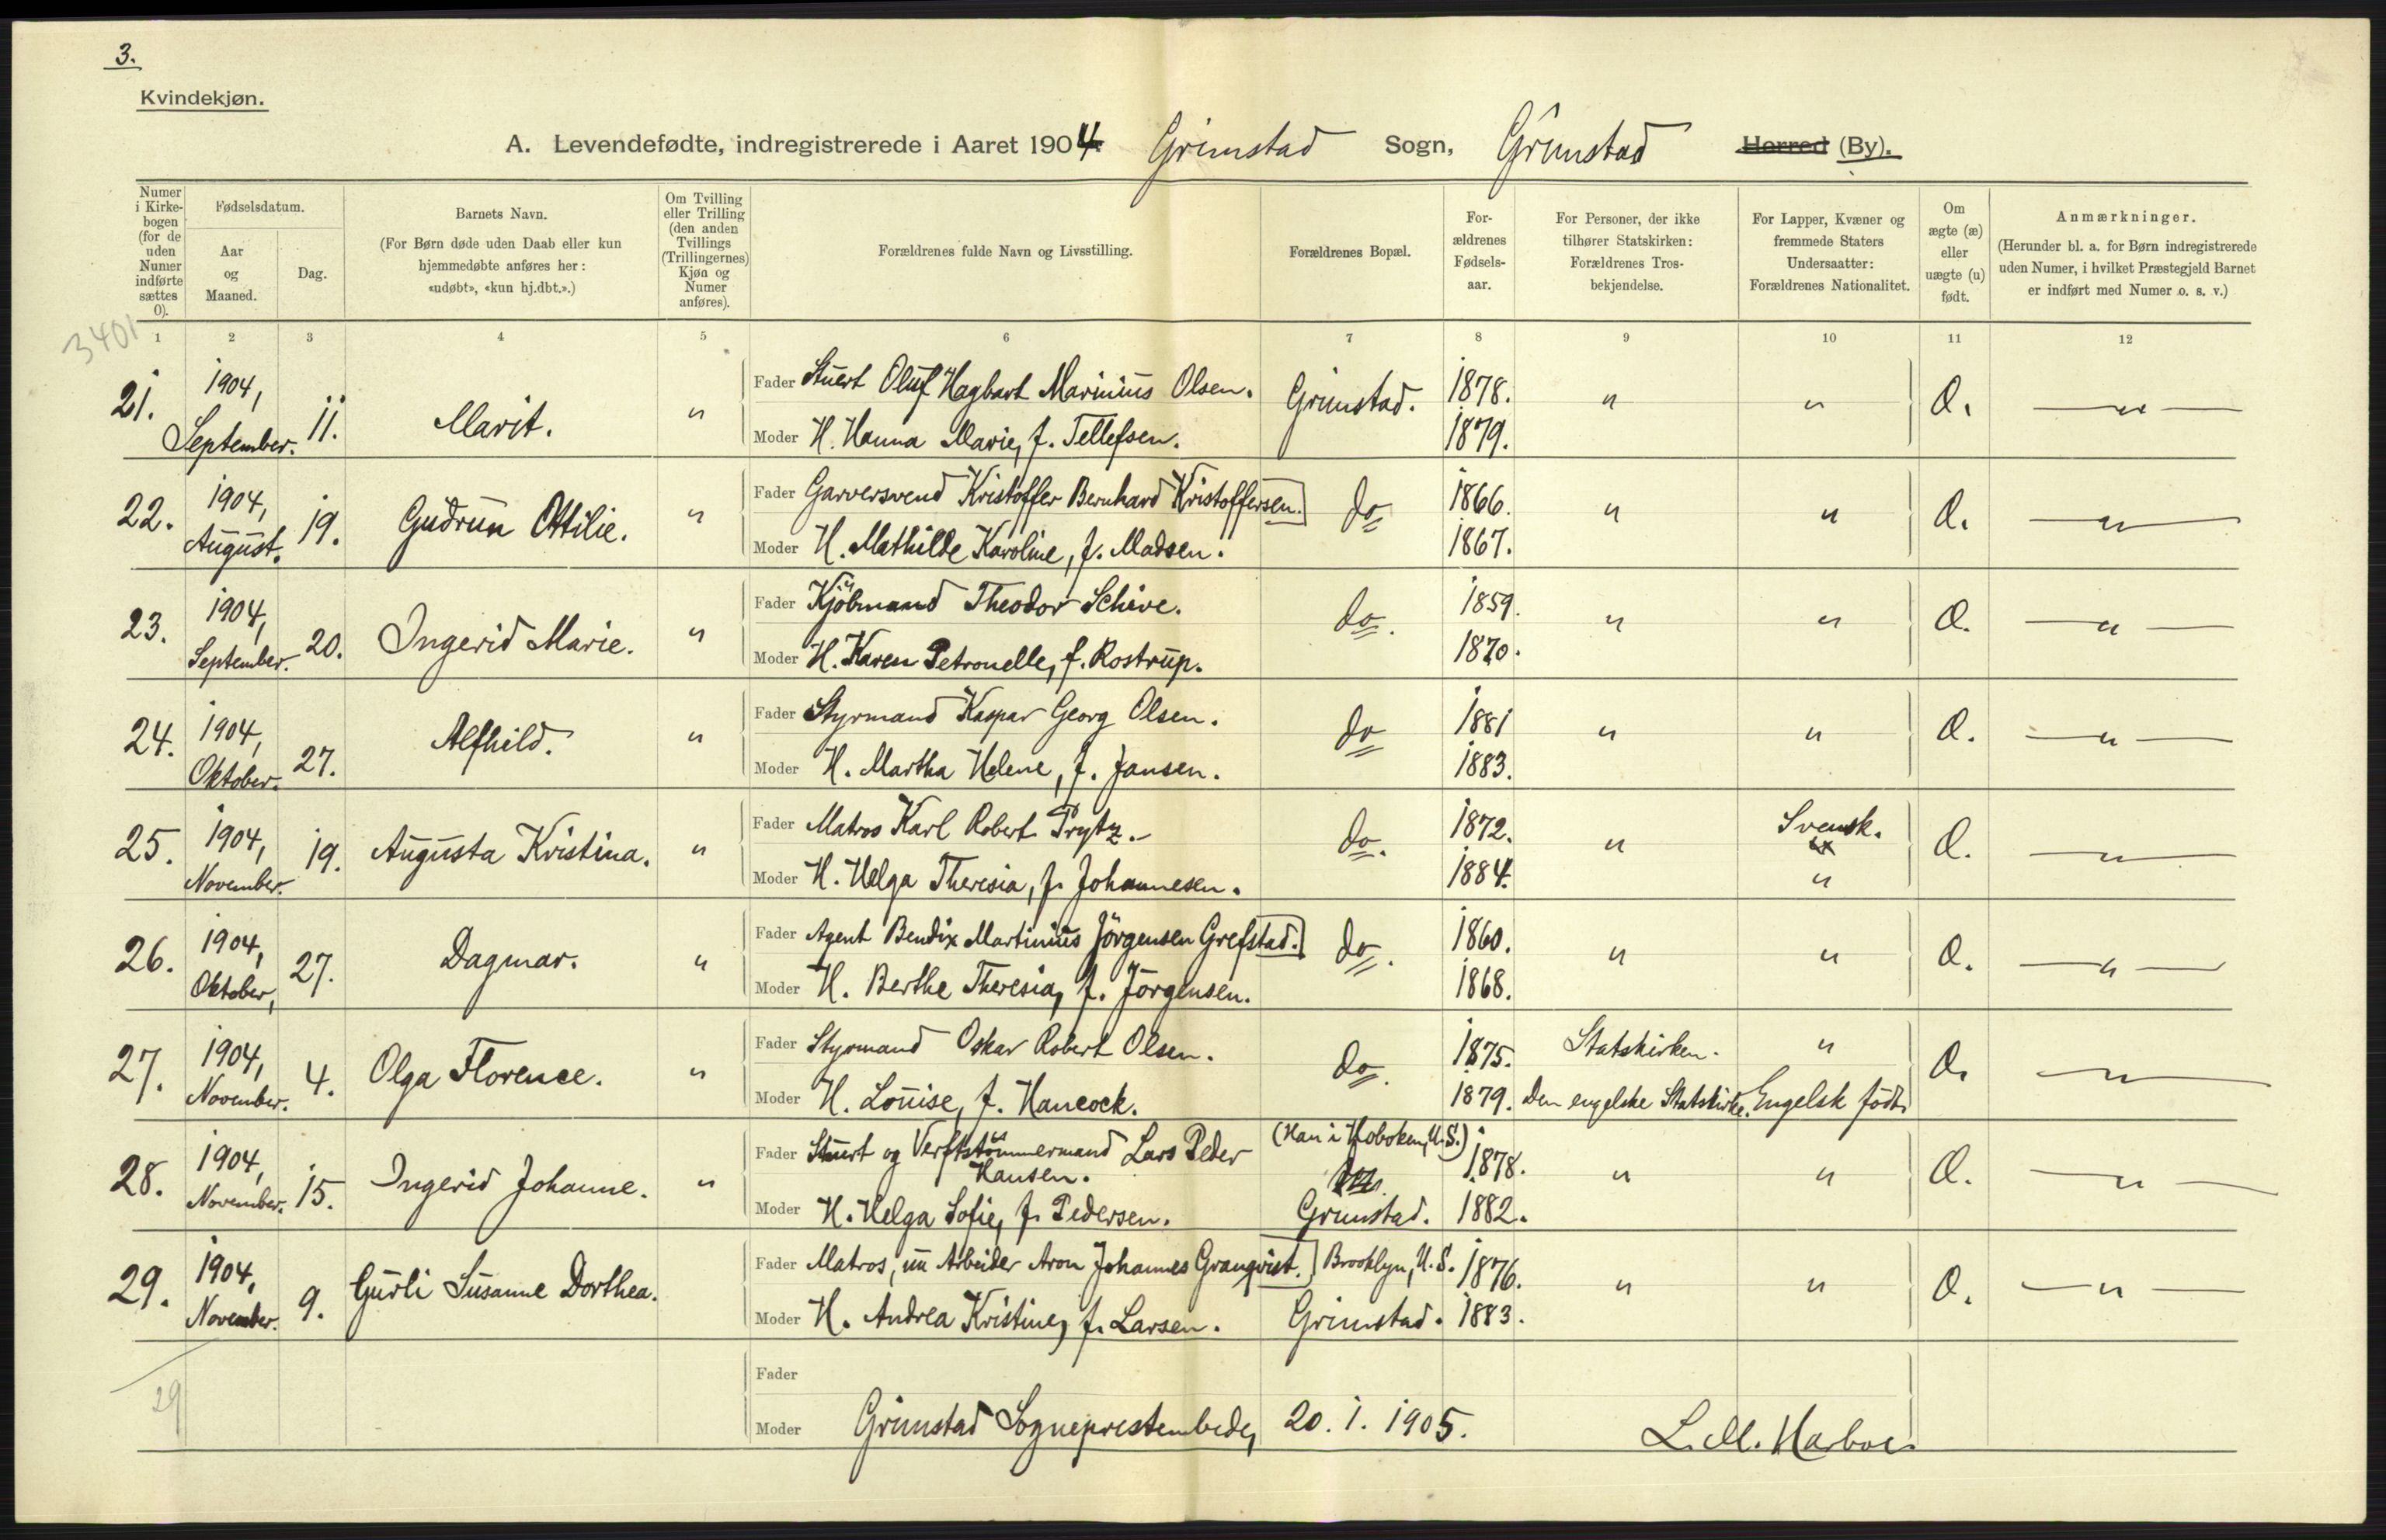 3.
Kvindekjøn.
A. Levendefødte, indregistrerede i Aaret 1904 Grimstad Sogn, Grimstad Herred (By).
Numer i Kirke-bogen (for de uden Numer indførte sættes 0).
Fødselsdatum.
Aar og Maaned.
Dag.
Barnets Navn.
(For Børn døde uden Daab eller kun hjemmedøbte anføres her: «udøbt», «kun hj.dbt.».)
Om Tvilling eller Trilling (den anden Tvillings (Trillingernes) Kjøn og Numer anføres).
Forældrenes fulde Navn og Livsstilling.
Forældrenes Bopæl.
For-ældrenes Fødsels-aar.
For Personer, der ikke tilhører Statskirken: Forældrenes Tros-bekjendelse.
For Lapper, Kvæner og fremmede Staters Undersaatter: Forældrenes Nationalitet.
Om ægte (æ) eller uægte (u) født.
Anmærkninger.
(Herunder bl. a. for Børn indregistrerede uden Numer, i hvilket Præstegjeld Barnet er indført med Numer o. s. v.)
3401
1 2 3 4 5 6 7 8 9 10 11 12
21. 1904, September. 11. Marit. " Fader Stuert Oluf Hagbart Marinius Olsen. Grimstad. 1878. " " Æ. — " —
Moder H. Hanna Marie, f. Tellefsen. 1879.
22. 1904, August. 19. Gudrun Ottilie. " Fader Garversvend Kristoffer Bernhard Kristoffersen. do 1866. " " Æ. — " —
Moder H. Mathilde Karoline, f. Madsen. 1867.
23. 1904, September. 20. Ingerid Marie. " Fader Kjöbmand Theodor Schive. do. 1859. " " Æ. — " —
Moder H. Karen Petronelle, f. Rostrup. 1870.
24. 1904, Oktober. 27. Alfhild. " Fader Styrmand Kaspar Georg Olsen. do 1881 " " Æ. — " —
Moder H. Martha Helene, f. Jansen. 1883.
25. 1904, November. 19. Augusta Kristina. " Fader Matros Karl Robert Prytz. do. 1872. " Svensk. Æ. — " —
Moder H. Helga Theresia, f. Johannesen. 1884. "
26. 1904, Oktober, 27. Dagmar. " Fader Agent Bendix Martinius Jörgensen Grefstad. do. 1860. " " Æ. — " —
Moder H. Berthe Theresia, f. Jörgensen. 1868.
27. 1904, November. 4. Olga Florence. " Fader Styrmand Oskar Robert Olsen. do. 1875. Statskirken. " Æ. — " —
Moder H. Louise, f. Hancock. 1879. Den engelske Statskirke. Engelsk født.
28. 1904, November. 15. Ingerid Johanne. " Fader Stuert og Verftstömmermand Lars Peder Hansen. (Han i Hoboken, U.S.) 1878. " " Æ. — " —
Moder H. Helga Sofie, f. Pedersen. Grimstad. 1882.
29. 1904, November. 9. Gurli Susanne Dorthea. Fader Matros, nu Arbeider Aron Johannes Granqvist. Brooklyn, U.S. 1876. " " Æ. — " —
Moder H. Andrea Kristine, f. Larsen. Grimstad. 1883.
29
Fader
Moder Grimstad Sogneprestembede, 20. 1. 1905. L. M. Harboe.